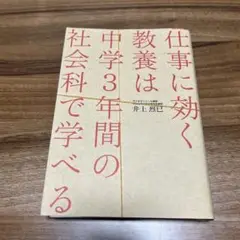 仕事に効く
教養は
中学3年間の
社会科で学べる
井上烈巳